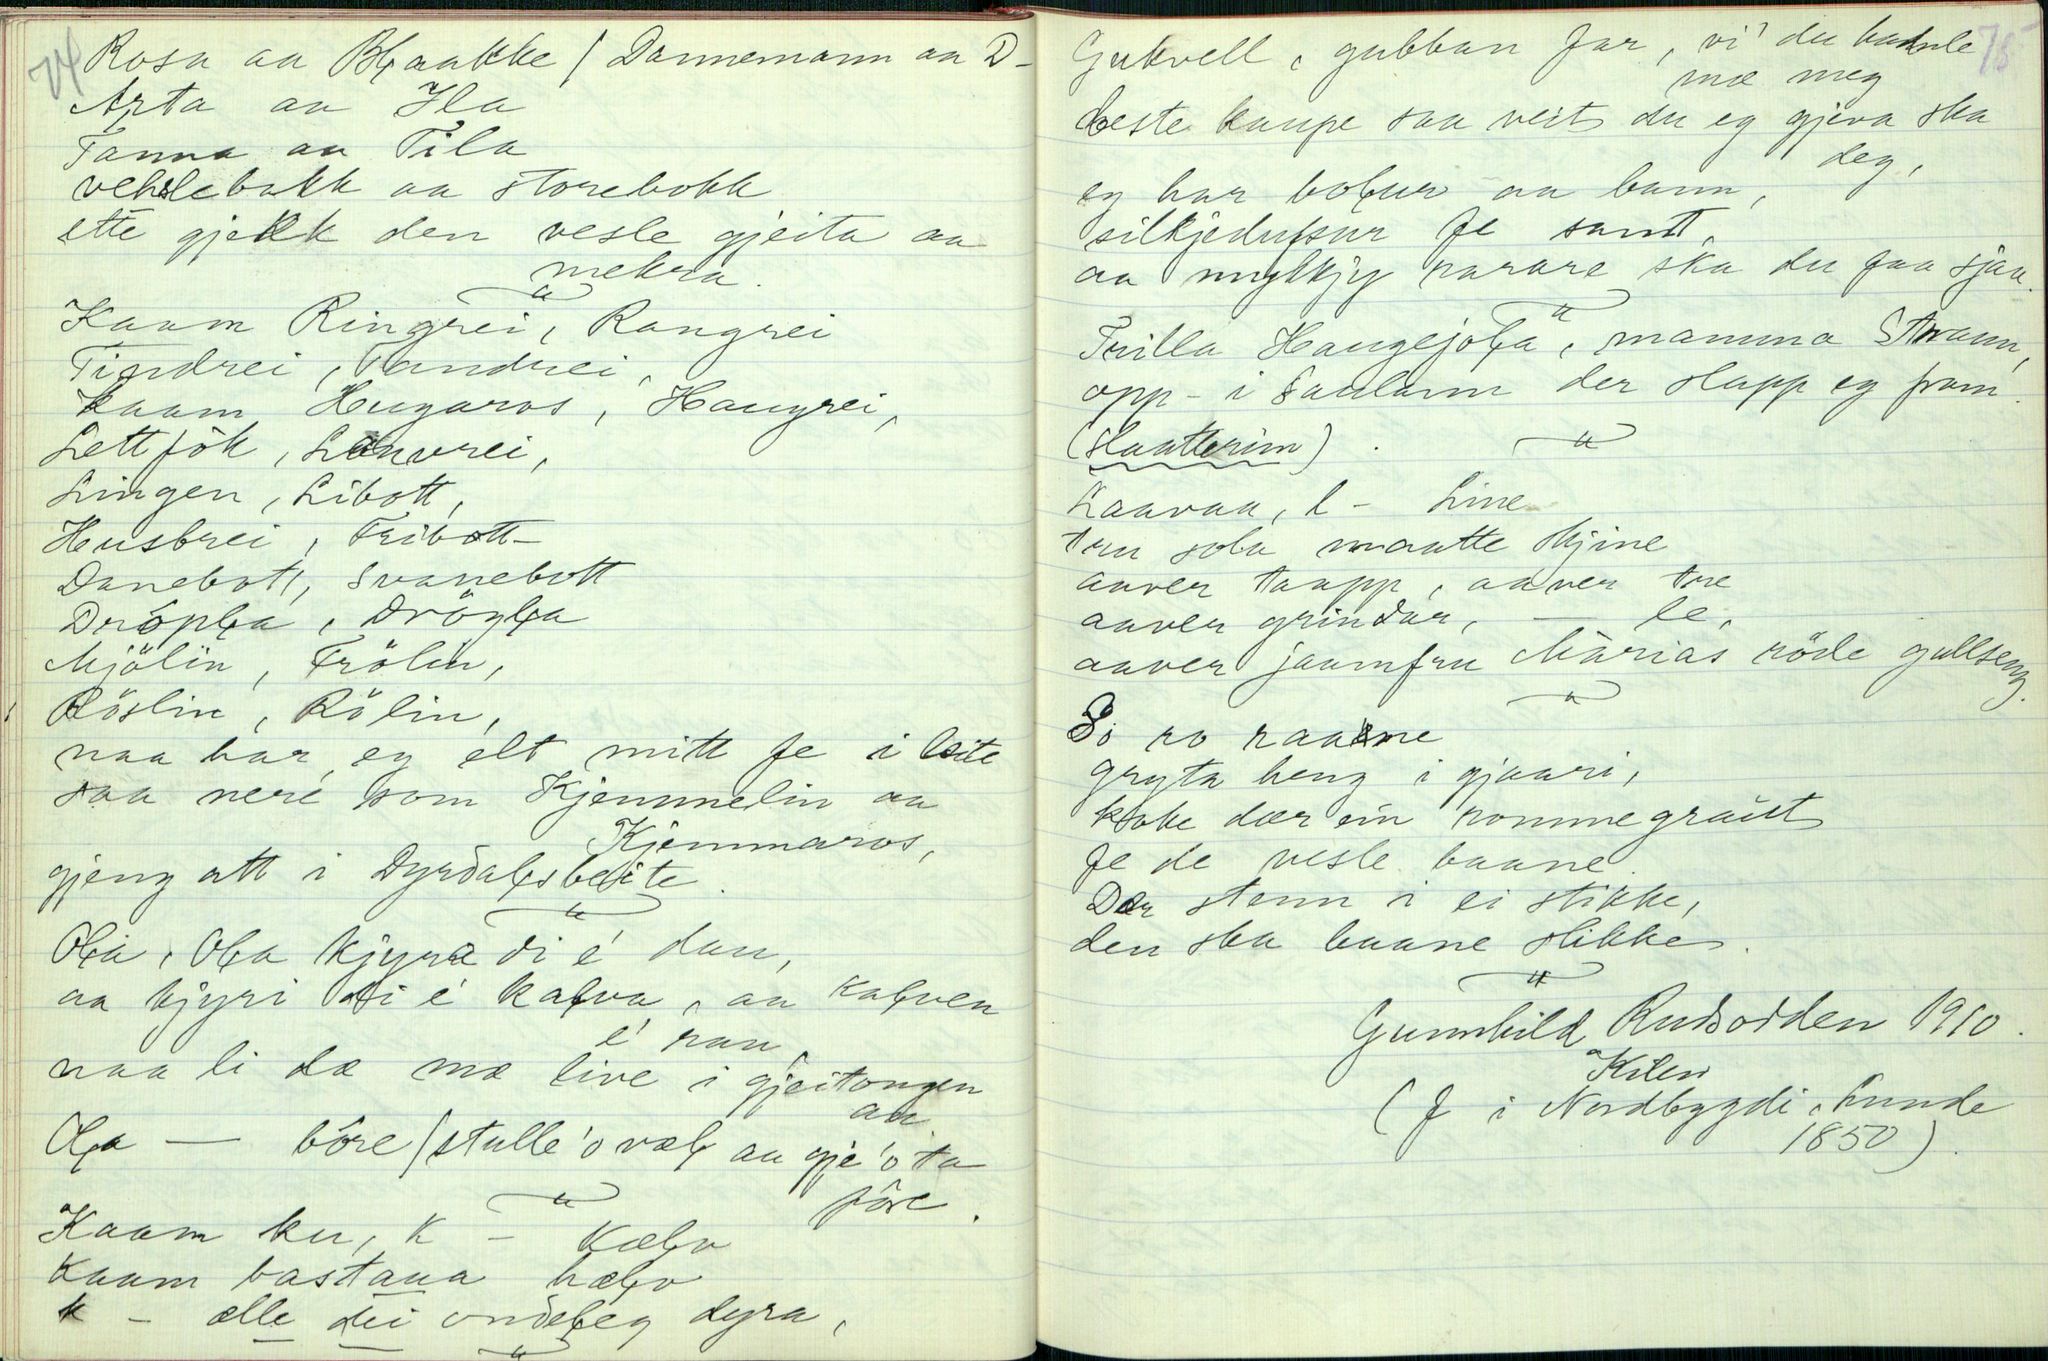 74
Rosa aa Blaakke / Dannemann aa D-
Arta aa Ila
Tanna aa Tila
veslebukk aa storebokk
ette gjekk den vesle gjeita aa
mekra.
Kaam Ringrei, Rangrei
Tindrei, Tandrei,
kaam Hugaros, Haugrei,
Lettfök, Lauvrei,
Lingen, Libott,
Husbrei, Tribott
Danebott, Svanebott
Dröpła, Drögła
Mjölin, Frölin,
Röslin, Rölin,
naa har eg elt mitt fe i leite
saa nere som Kjemmelin aa
Kjemmaros,
gjeng att i Dyrdałsbeite.
Oła, Oła kjyra di é dau,
aa kjyri di é kałva, aa kałven
é rau,
naa li dæ mæ live i gjeitongen
aa
Oła — böre / stulle 'o væł aa gje 'o ta
före.
Kaam ku, k - kæłv
kaam bastana hæłv
k - ælle dei ondełeg dyra,
75
Gukvell, gubban far, vi' du handle
mæ meg
heste kaupe saa veit du eg gjeva ska
deg,
eg har bołur aa bann,
silkjeduſsur fe sant,
aa mykkjy rarare ska du faa sjaa.
Trilla Haugejoła, mamma Strann,
opp i Sauland der slapp eg fram.
(slaatterim)
Laavaa, l - Line
tru sola maatte skjine
aaver taapp, aaver tre
aaver grindar, — le,
aaver jaamfru Marias röde gullseng.
So ro raane
gryta heng i gjaari,
koke dær ein rommegraut
fe de vesle baane.
Dær stenn i ei stikke,
den ska baane slikke.
Gunnhild Rudsodden 1910.
Kilen
(f i Nordbygdi, Lunde
1850).